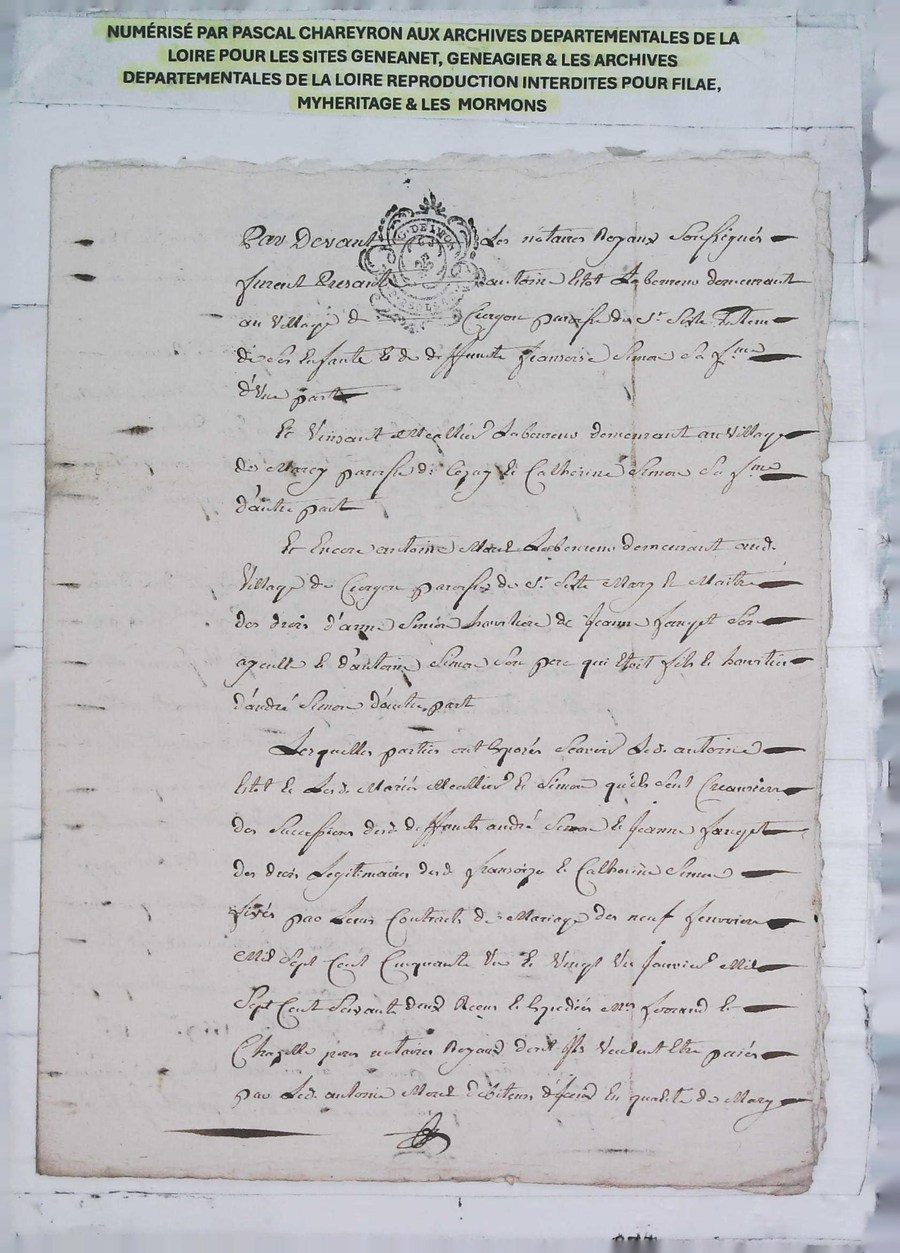 NUMÉRISÉ PAR PASCAL CHAREYRON AUX ARCHIVES DEPARTEMENTALES DE LA
LOIRE POUR LES SITES GENEANET, GENEAGIER & LES ARCHIVES
DEPARTEMENTALES DE LA LOIRE REPRODUCTION INTERDITES POUR FILAE,
MYHERITAGE & LES MORMONS
Par Devant Les notaires Royaux Soussignés
furent Presant antoine Laboureur demeurant
au Village de paroisse de St. Sixte
de ses Enfants & de deffuncte francoise Simon Sa fme
d'Une part
Et Vinsant Laboureur demeurant au Village
de Marcy paroisse de & Catherine Simon Sa fme
d'autre part
Et Encore antoine Morel Laboureur demeurant aud.
Village de paroisse de St. Sixte Mary & Maitre
des drois d'anne Simon heoritiere de Jeanne Son
ayeulle & d'antoine Simon Son pere qui Etoit fils & heoritier
d'andré Simon d'autre part
Lesquelles parties ont Exposés Scavoir Led. antoine
& Les d. Mariés & Simon qu'ils Sont Creanciers
des Successions desd. deffunts andré Simon & Jeanne
des drois Legitimaires desd. françoize & Catherine Simon
fixés par Leurs Contracts de Mariage des neuf feuvrier
Mil Sept Cent Cinquante Un & Vingt Un Janvier Mil
Sept Cent Soixante deux Receu & Expediés Mes ferrand &
Chazelle pour notaires Royaux dont ils Veulent Etre paiés
par Led. antoine Morel debiteur d'Jceux En qualité de Mary